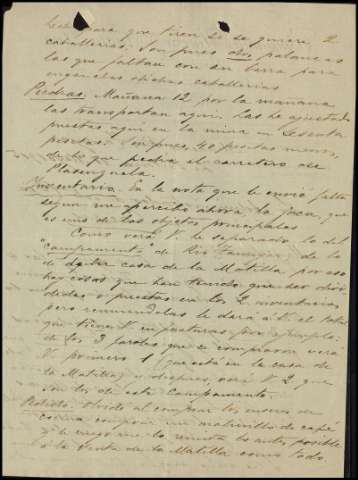 para que tiren si se quiere 2
caballerías. Son pues dos palancas
las que faltan con su barra para
enganchar dichas caballerías
Piedras. Mañana 12 por la mañana
las transportan aquí. Las he ajustado
puestas aquí en la mina en sesenta
pesetas. Son pues, 40 pesetas menos,
de lo que pedía el carretero de
Plasenzuela.
Inventario. En la nota que le envié falta
según me apercibo ahora la jaca, que
es uno de los objetos principales
Como verá V. he separado lo del
"campamento" de Río Tamuja, de lo
de la casa de la Matilla, por eso
hay cosas que han tenido que ser divi-
didas o puestas en los 2 inventarios
pero reuniéndolas le dará a V. el total
que tiene V. en facturas por ejemplo:
de los 3 faroles que se compraron verá
V. primero 1 (que está en la casa de
la Matilla) y después, verá V. 2 que
son los de este campamento.
Pedido. Olvidé al comprar los enseres de
cocina comprar un molinillo de café
ruego me lo remita lo antes posible
a la Venta de la Matilla como todo